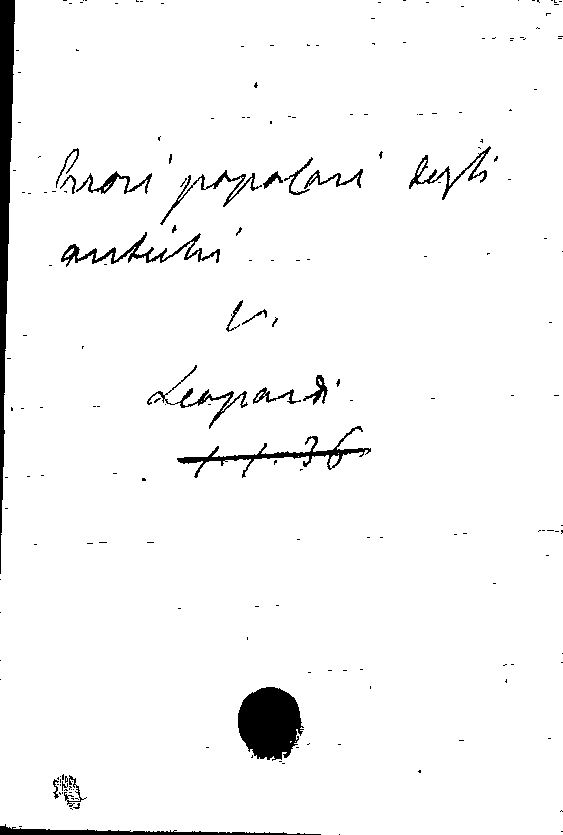 Errori popolari degli
antichi
v.
Leopardi
1.1.36